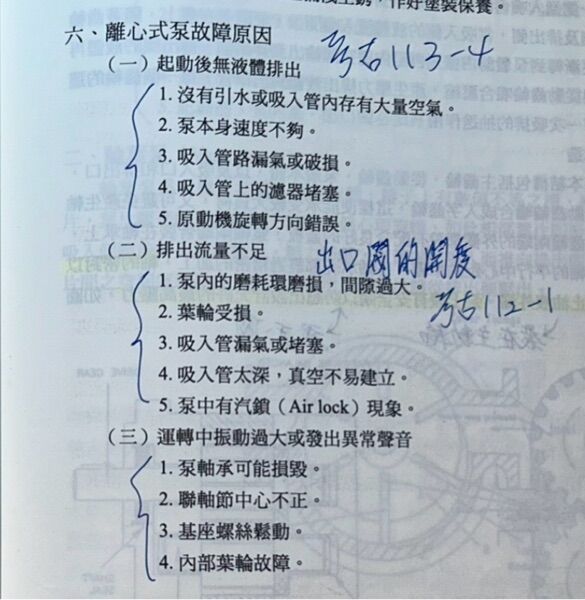 作好塗裝保養。
六、離心式泵故障原因
考古113-4
（一）起動後無液體排出
1. 沒有引水或吸入管內存有大量空氣。
2. 泵本身速度不夠。
3. 吸入管路漏氣或破損。
4. 吸入管上的濾器堵塞。
5. 原動機旋轉方向錯誤。
（二）排出流量不足
出口閥的開度
考古112-1
1. 泵內的磨耗環磨損，間隙過大。
2. 葉輪受損。
3. 吸入管漏氣或堵塞。
4. 吸入管太深，真空不易建立。
5. 泵中有汽鎖（Air lock）現象。
（三）運轉中振動過大或發出異常聲音
1. 泵軸承可能損毀。
2. 聯軸節中心不正。
3. 基座螺絲鬆動。
4. 內部葉輪故障。